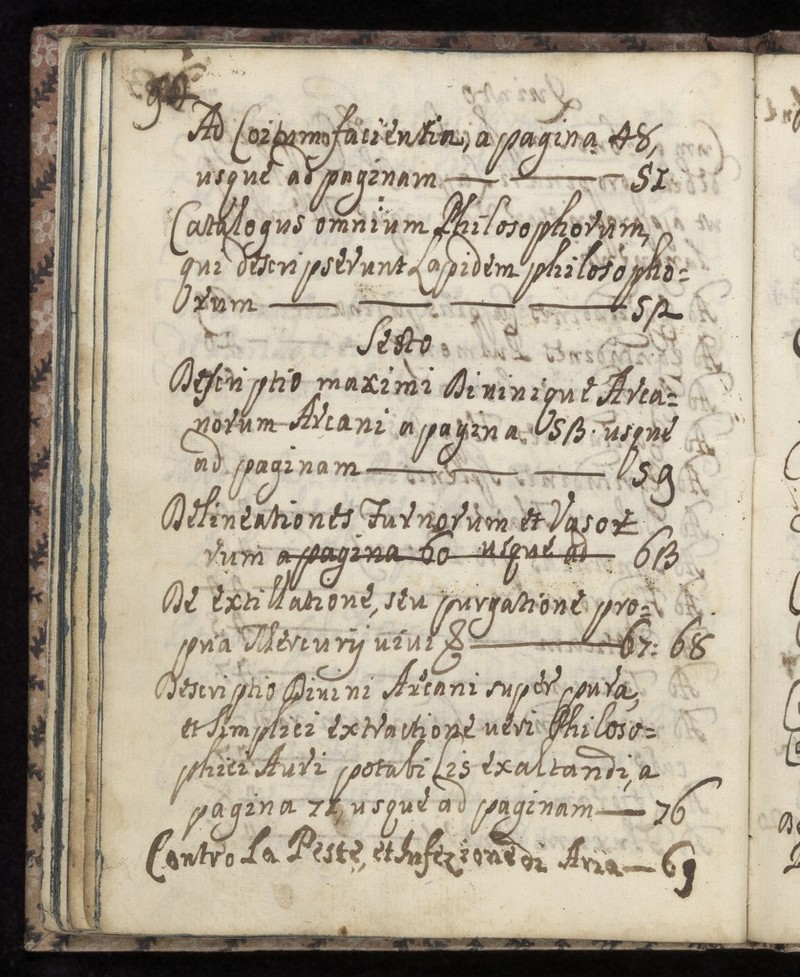 96
Ad Coitum facientia, a pagina 48,
usque ad paginam — — 51
Catalogus omnium Philosophorum,
qui descripserunt Lapidem philosopho=
rum — — — — 52
Sesto
Descriptio maximi Diuinique Arca=
norum Arcani a pagina 53. usque
ad paginam — — — 59
Delineationes Furnorum et Vasor
rum a pagina 60 usque ad 63
De extillatione, seu purgatione pro=
pria Mercurij uiui ☿ — 67: 68
Descriptio Diuini Arcani super pura,
et simplici extractione ueri Philoso=
phici Auri potabilis exaltandi, a
pagina 71, usque ad paginam — 76
Contro La Peste, et Infezione di Aria — 69